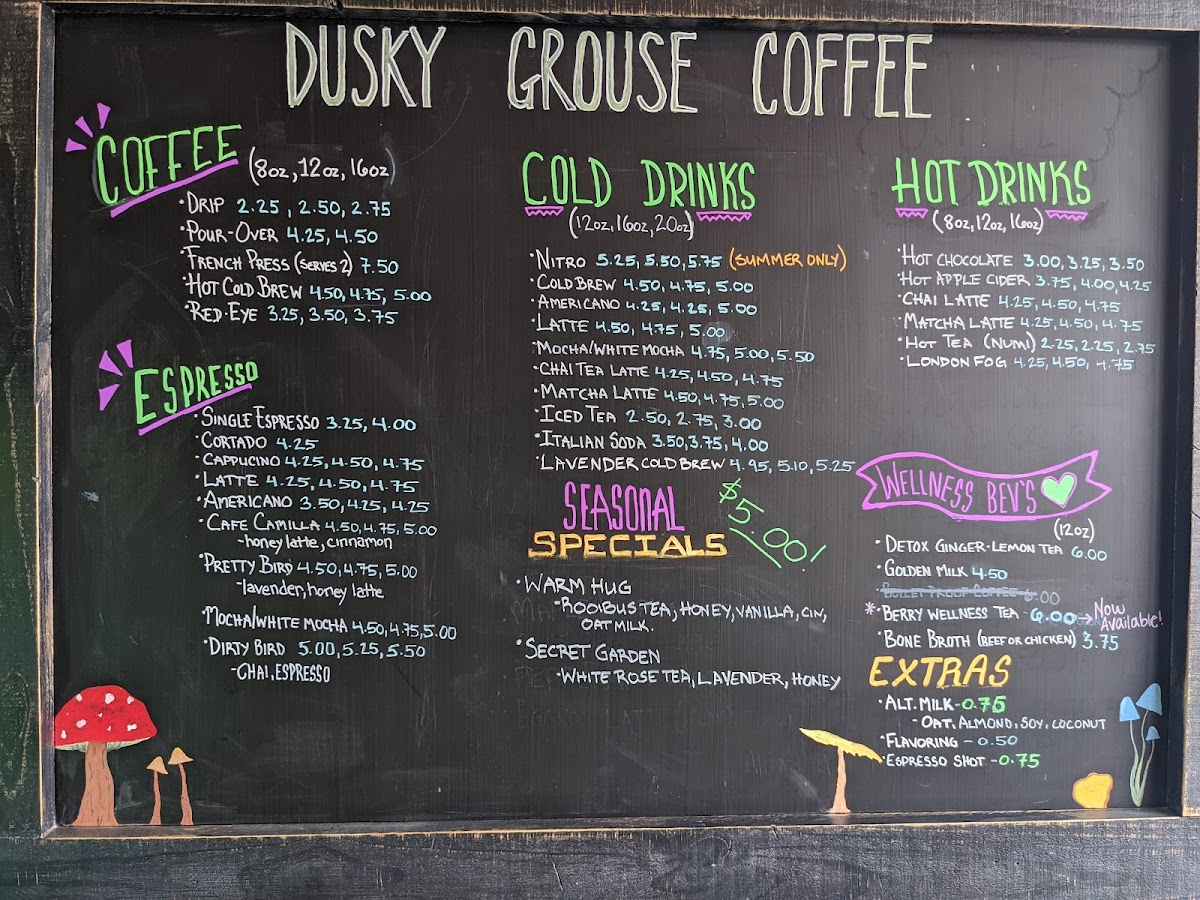 DUSKY GROUSE COFFEE
COFFEE (8oz, 12oz, 16oz)
• DRIP 2.25, 2.50, 2.75
• POUR-OVER 4.25, 4.50
• FRENCH PRESS (SERVES 2) 7.50
• HOT COLD BREW 4.50, 4.75, 5.00
• RED-EYE 3.25, 3.50, 3.75
ESPRESSO
• SINGLE ESPRESSO 3.25, 4.00
• CORTADO 4.25
• CAPPUCINO 4.25, 4.50, 4.75
• LATTE 4.25, 4.50, 4.75
• AMERICANO 3.50, 4.25, 4.25
• CAFE CAMILLA 4.50, 4.75, 5.00
-honey latte, cinnamon
• PRETTY BIRD 4.50, 4.75, 5.00
-lavender, honey latte
• MOCHA/WHITE MOCHA 4.50, 4.75, 5.00
• DIRTY BIRD 5.00, 5.25, 5.50
-CHAI, ESPRESSO
COLD DRINKS
(12oz, 16oz, 20oz)
• NITRO 5.25, 5.50, 5.75 (SUMMER ONLY)
• COLD BREW 4.50, 4.75, 5.00
• AMERICANO 4.25, 4.25, 5.00
• LATTE 4.50, 4.75, 5.00
• MOCHA/WHITE MOCHA 4.75, 5.00, 5.50
• CHAI TEA LATTE 4.25, 4.50, 4.75
• MATCHA LATTE 4.50, 4.75, 5.00
• ICED TEA 2.50, 2.75, 3.00
• ITALIAN SODA 3.50, 3.75, 4.00
• LAVENDER COLD BREW 4.95, 5.10, 5.25
SEASONAL
SPECIALS
$5.00!
• WARM HUG
-ROOIBUS TEA, HONEY, VANILLA, CIN,
OAT MILK.
• SECRET GARDEN
-WHITE ROSE TEA, LAVENDER, HONEY
HOT DRINKS
(8oz, 12oz, 16oz)
• HOT CHOCOLATE 3.00, 3.25, 3.50
• HOT APPLE CIDER 3.75, 4.00, 4.25
• CHAI LATTE 4.25, 4.50, 4.75
• MATCHA LATTE 4.25, 4.50, 4.75
• HOT TEA (NUMI) 2.25, 2.25, 2.75
• LONDON FOG 4.25, 4.50, 4.75
WELLNESS BEV'S
(12oz)
• DETOX GINGER-LEMON TEA 6.00
• GOLDEN MILK 4.50
• BULLET PROOF COFFEE 6.00
* BERRY WELLNESS TEA - 6.00 → Now
Available!
• BONE BROTH (BEEF OR CHICKEN) 3.75
EXTRAS
• ALT. MILK - 0.75
- OAT, ALMOND, SOY, COCONUT
• FLAVORING - 0.50
• ESPRESSO SHOT - 0.75